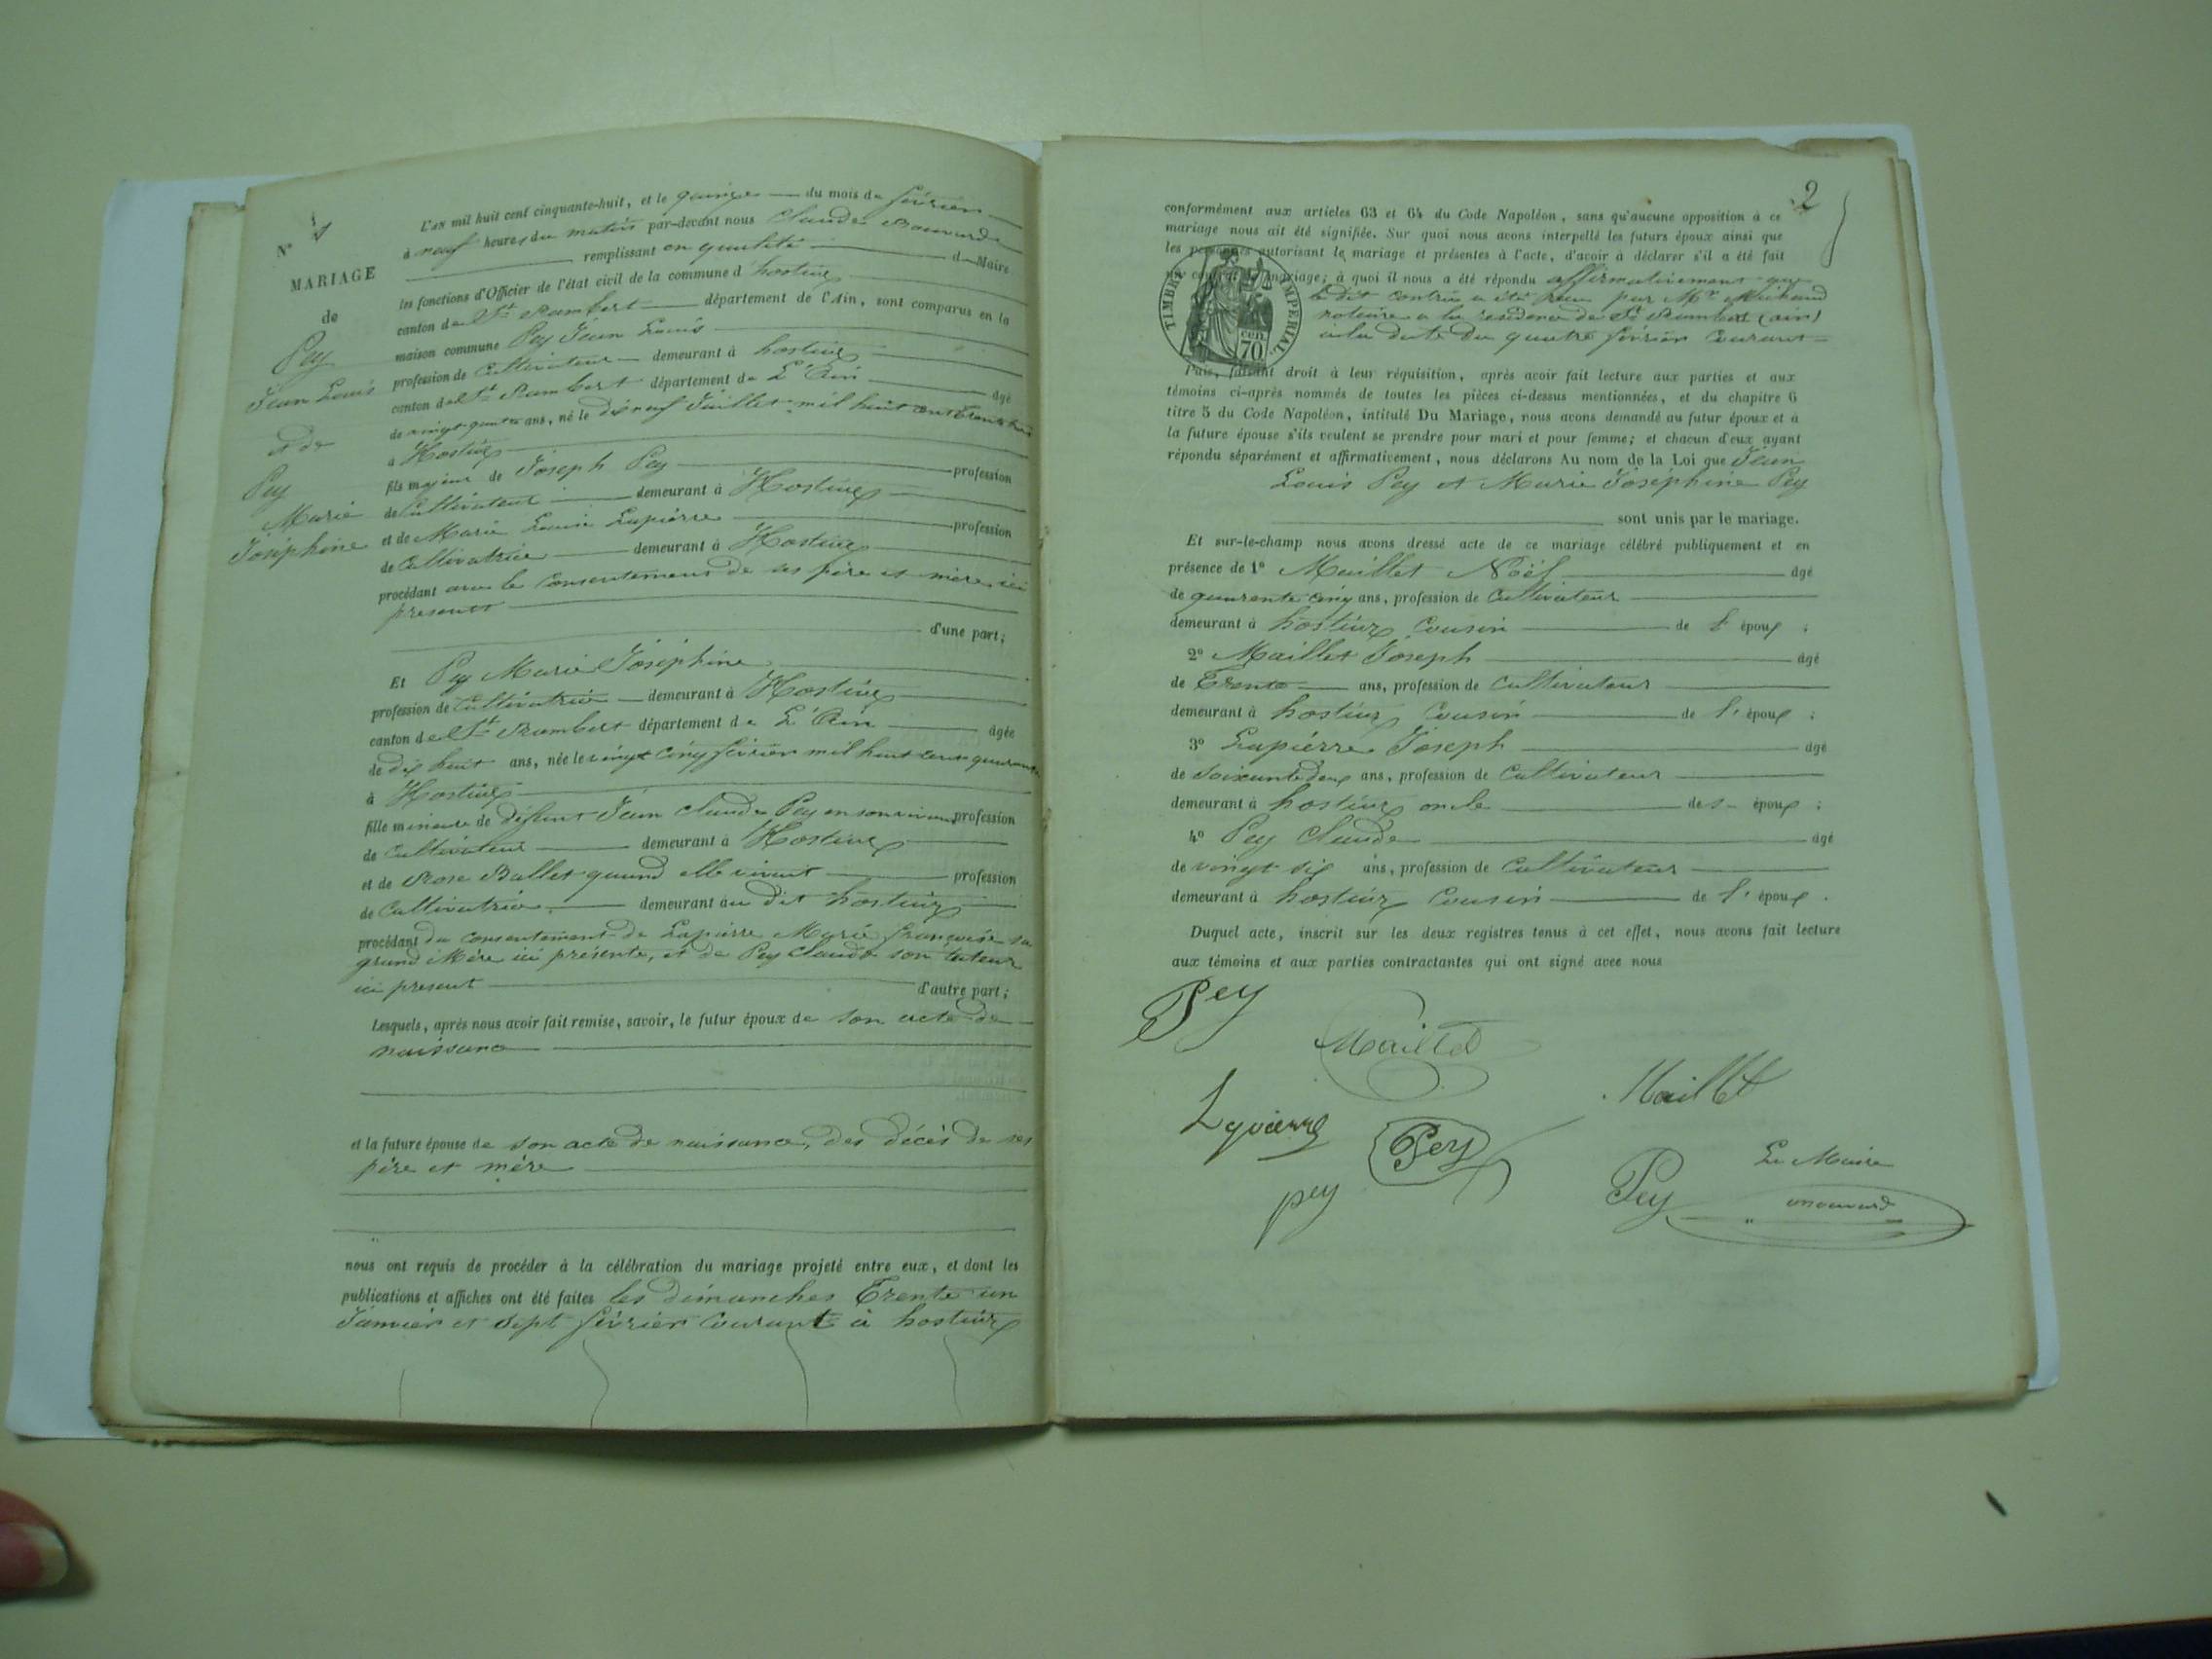 N° 1
MARIAGE
de
Pey
Jean Louis
et de
Pey
Marie
Joséphine
L'AN mil huit cent cinquante-huit, et le quinze du mois de février
à neuf heures du matin par-devant nous Claude
remplissant en qualité d Maire
les fonctions d'Officier de l'état civil de la commune d hostiaz
canton de St Rambert département de l'Ain, sont comparus en la
maison commune Pey Jean Louis
profession de Cultivateur demeurant à hostiaz
canton de St Rambert département de L'Ain âgé
de vingt quatre ans, né le dix neuf Juillet mil huit cent trente trois
à Hostiaz
fils majeur de Joseph Pey profession
de Cultivateur demeurant à Hostiaz
et de Marie Louise Lapierre profession
de Cultivatrice demeurant à Hostiaz
procédant avec le consentement de ses père et mère ici
présents
d'une part;
Et Pey Marie Joséphine
profession de Cultivatrice demeurant à Hostiaz
canton de St Rambert département de L'Ain âgée
de dix huit ans, née le vingt cinq février mil huit cent quarante
à Hostiaz
fille mineure de défunt Jean Claude Pey en son vivant profession
de Cultivateur demeurant à Hostiaz
et de Rose Ballet quand elle vivait profession
de Cultivatrice demeurant au dit hostiaz
procédant du consentement de Lapierre Marie françoise sa
grand Mère ici présente, et de Pey Claude son tuteur
ici présent d'autre part;
Lesquels, après nous avoir fait remise, savoir, le futur époux de son acte de
naissance
et la future épouse de son acte de naissance, des décès de ses
père et mère
nous ont requis de procéder à la célébration du mariage projeté entre eux, et dont les
publications et affiches ont été faites les dimanches Trente un
Janvier et sept février Courant à hostiaz
2
conformément aux articles 63 et 64 du Code Napoléon, sans qu'aucune opposition à ce
mariage nous ait été signifiée. Sur quoi nous avons interpellé les futurs époux ainsi que
les personnes autorisant le mariage et présentes à l'acte, d'avoir à déclarer s'il a été fait
un contrat de mariage; à quoi il nous a été répondu affirmativement que
le dit contrat a été reçu par Me Michaud
notaire a la résidence de St Rambert (ain)
à la date du quatre février Courant
TIMBRE IMPERIAL
70 cen
Puis, faisant droit à leur réquisition, après avoir fait lecture aux parties et aux
témoins ci-après nommés de toutes les pièces ci-dessus mentionnées, et du chapitre 6
titre 5 du Code Napoléon, intitulé Du Mariage, nous avons demandé au futur époux et à
la future épouse s'ils veulent se prendre pour mari et pour femme; et chacun d'eux ayant
répondu séparément et affirmativement, nous déclarons Au nom de la Loi que Jean
Louis Pey et Marie Joséphine Pey
sont unis par le mariage.
Et sur-le-champ nous avons dressé acte de ce mariage célébré publiquement et en
présence de 1° Maillet Noël âgé
de quarante cinq ans, profession de Cultivateur
demeurant à hostiaz Cousin de l'époux ;
2° Maillet Joseph âgé
de Trente ans, profession de Cultivateur
demeurant à hostiaz Cousin de l'époux ;
3° Lapierre Joseph âgé
de soixante deux ans, profession de Cultivateur
demeurant à hostiaz oncle des époux ;
4° Pey Claude âgé
de vingt six ans, profession de Cultivateur
demeurant à hostiaz Cousin de l'époux .
Duquel acte, inscrit sur les deux registres tenus à cet effet, nous avons fait lecture
aux témoins et aux parties contractantes qui ont signé avec nous
Pey
Maillet
Maillet
Lapierre
Pey
Le Maire
pey
Pey